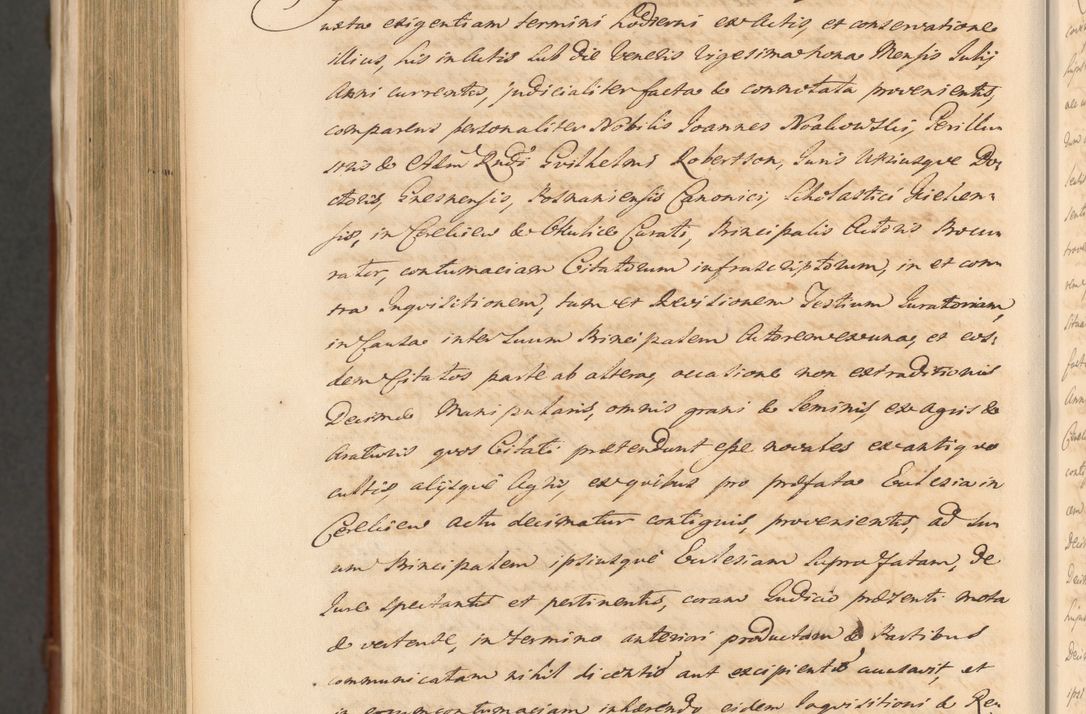 uxta exigentiam termini hodierni ex Actis, et conservatione
illius, his in Actis sub die Veneris Vigesima nona Mensis Julij
Anni currentis, judicialiter facta & connotata provenientis,
comparens personaliter Nobilis Joannes Noakowski, Perillu-
stris & Adm Rndi Guilhelmi Robertson, Juris Utriusque Do-
ctoris, Gnesnensis, Posnaniensis Canonici, Scholastici Kielcen-
sis, in Cerekiew & Okulice Curati, Principalis Actoris Procu-
rator, contumaciam Citatorum infrascriptorum, in et con-
tra Inquisitionem, tum et Revisionem Testium Juratoriam,
in Causa inter Suum Principalem Actorem ex una, et eos-
dem Citatos parte ab altera, occasione non extraditionis
Decimae Manipularis, omnis grani & Seminis ex Agris &
Araturis quos Citati praetendunt esse novales ex antiquo
cultis, alijsque Agris, ex quibus pro praefata Ecclesia in
Cerekiew actu decimatur contiguis, provenientis, ad Su-
um Principalem ipsiusque Ecclesiam supra fatam, de
Jure spectantis et pertinentis, coram Judicio praesenti mota
& vertente, in termino anteriori productam & Partibus
communicatam nihil dicentis aut excipientis accusavit, et
in eorum contumaciam inhaerendo eidem Inquisitioni & Re-